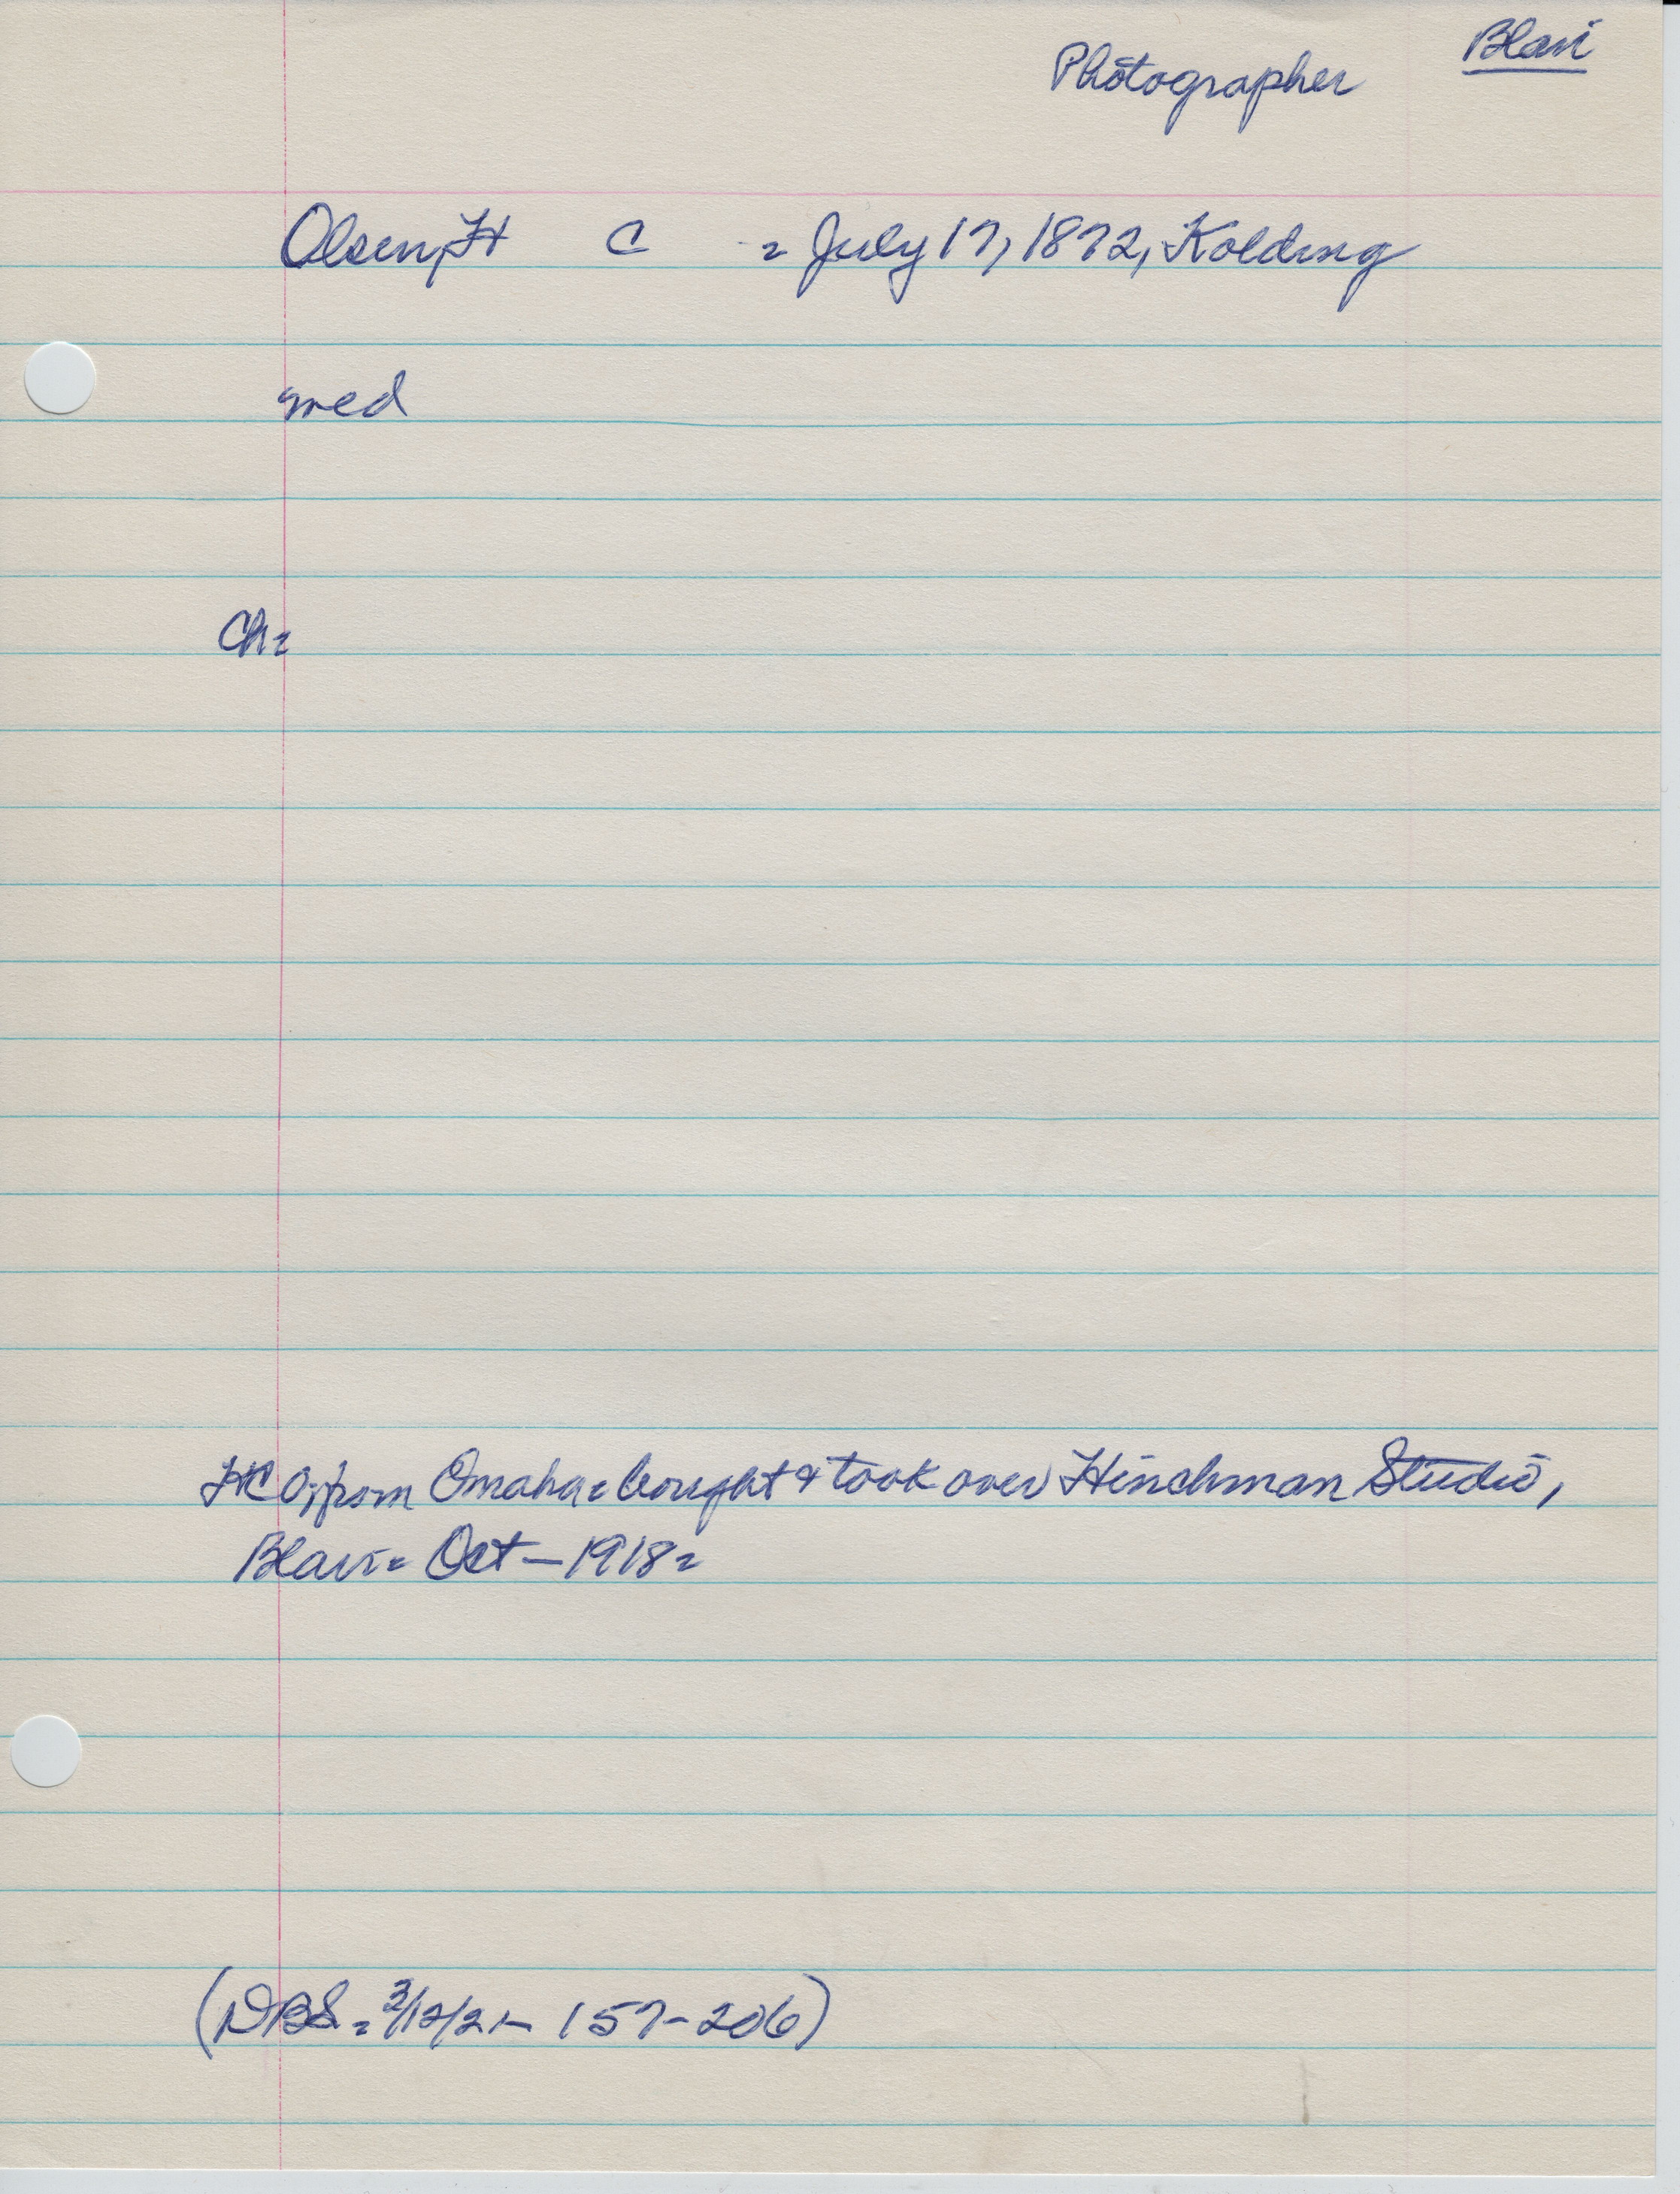 Blair
Photographer
Olsen, H C = July 17, 1872, Kolding
med
Ch=
HCO, from Omaha = bought & took over Hinchman Studio,
Blair = Oct - 1918 =
(DBS = 3/12/21 - 157-206)